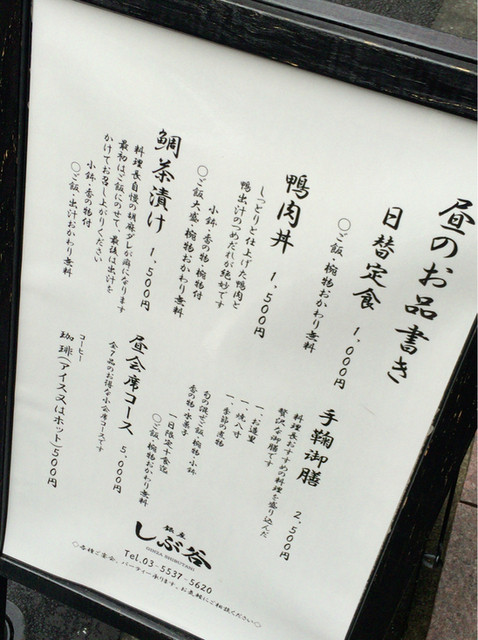 昼のお品書き
日替定食 1,000円
〇ご飯・椀物おかわり無料
鴨肉丼 1,500円
しっとりと仕上げた鴨肉と
鴨出汁のつめだれが絶妙です
小鉢・香の物・椀物付
〇ご飯大盛・椀物おかわり無料
鯛茶漬け 1,500円
料理長自慢の胡麻ダレが癖になります
最初はご飯にのせて、最後は出汁を
かけてお召し上がりください
小鉢・香の物付
〇ご飯・出汁おかわり無料
手鞠御膳 2,500円
料理長おすすめの料理を盛り込んだ
贅沢な御膳です
一、お造里
一、焼八寸
一、季節の煮物
旬の混ぜご飯・椀物・小鉢
香の物・水菓子
一日限定十食迄
〇ご飯・椀物おかわり無料
昼会席コース 5,000円
全7品のお得な小会席コースです
コーヒー
珈琲(アイス又はホット)500円
銀座
しぶ谷
GINZA SHIBUTANI
Tel.03-5537-5620
◇各種ご宴会、パーティー承ります。お気軽にご相談ください◇